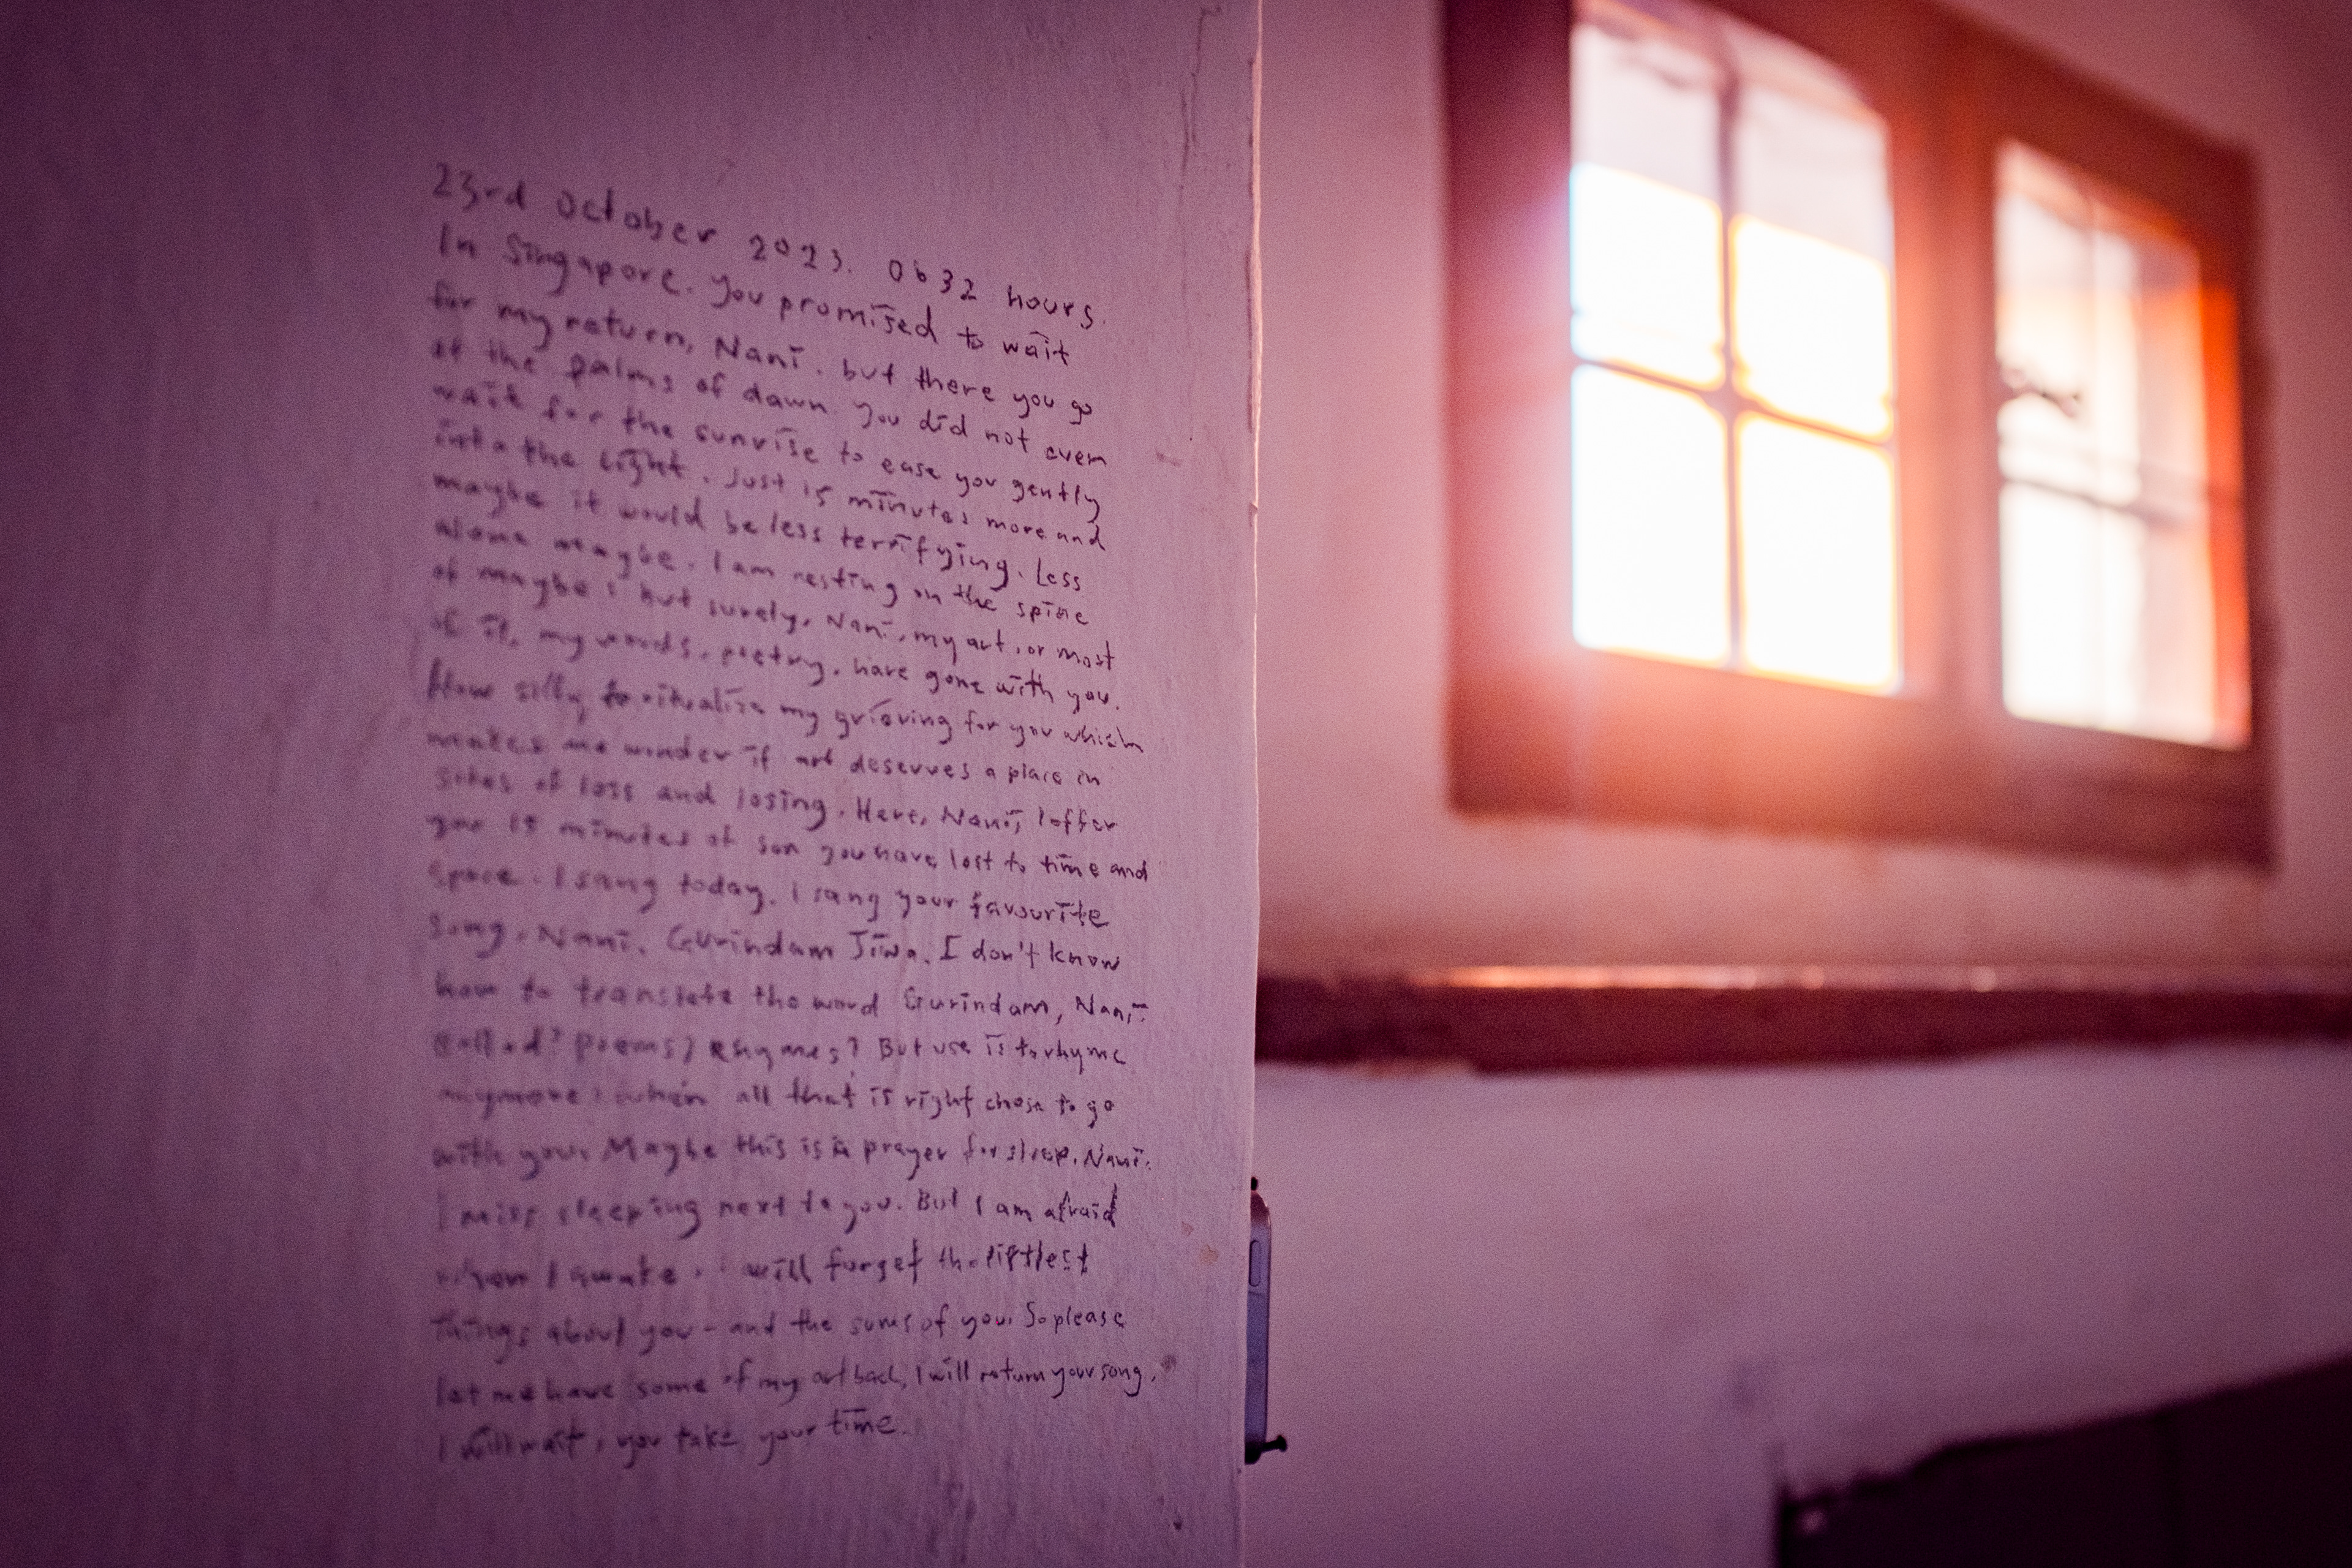 23rd October 2023. 0632 hours.
In Singapore. You promised to wait
for my return, Nani. but there you go
at the palms of dawn. You did not even
wait for the sunrise to ease you gently
into the light. Just 15 minutes more and
maybe it would be less terrifying. Less
alone maybe. I am resting on the spine
of maybe's but surely, Nani, my art, or most
of it, my words, poetry, have gone with you.
How silly to ritualise my grieving for you which
makes me wonder if art deserves a place in
sites of loss and losing. Here, Nani, I offer
you 15 minutes of sun you have lost to time and
space. I sang today. I sang your favourite
song, Nani. Gurindam Jiwa. I don't know
how to translate the word Gurindam, Nani.
Ballad? Poems? Rhymes? But use is to rhyme
anymore when all that is right chose to go
with you. Maybe this is a prayer for sleep, Nani.
I miss sleeping next to you. But I am afraid
when I awake, I will forget the littlest
things about you - and the sums of you. So please
let me have some of my art back, I will return your song.
I will wait, you take your time.